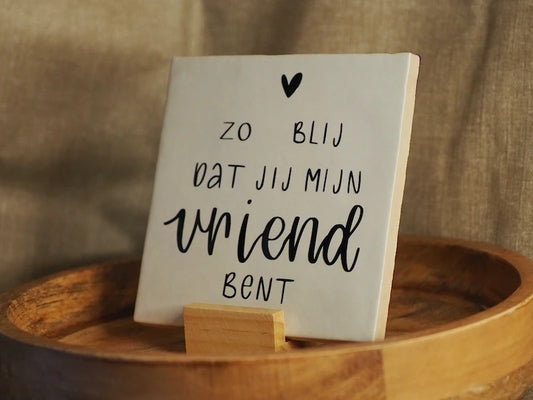 ZO BLIJ
DaT JIJ MIJN
vriend
BENT